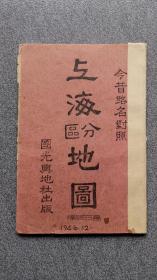 今昔路名對照
上海分區地圖
國光輿地社出版
1946.12.